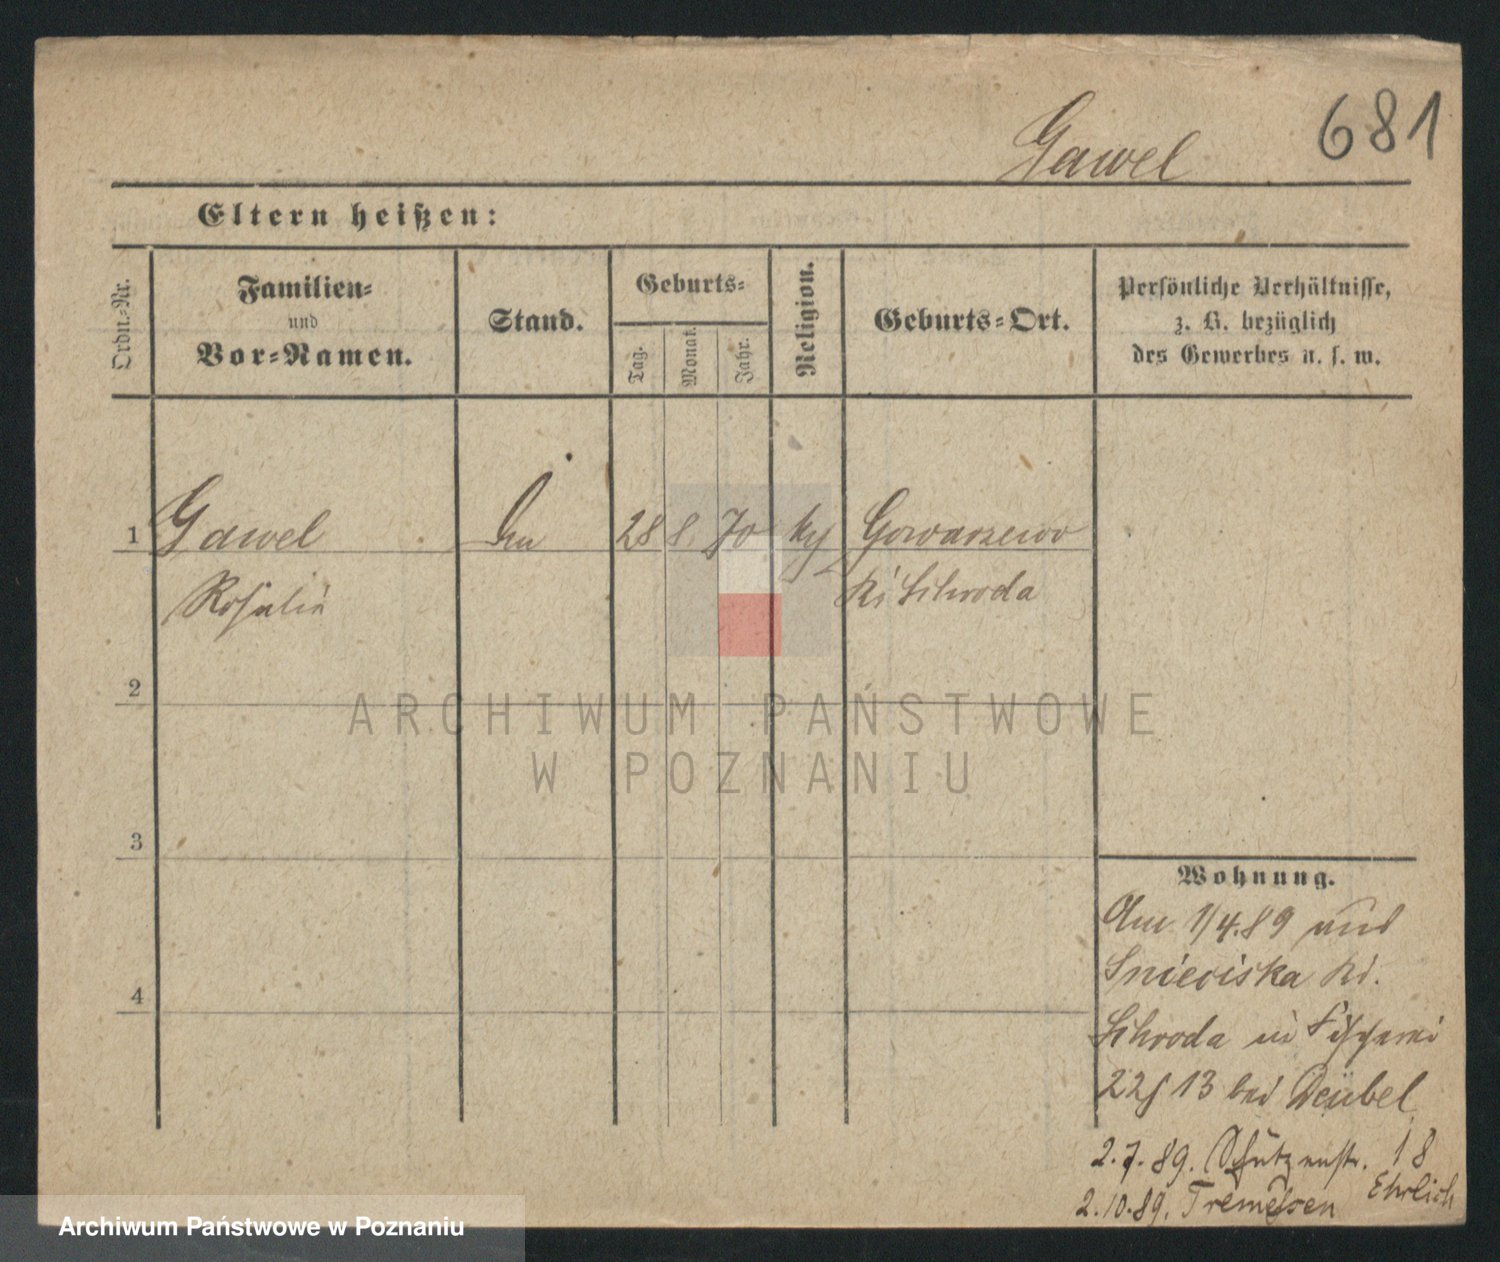 681
Gawel
Eltern heißen:
Ordn.-Nr.
Familien-
und
Vor-Namen.
Stand.
Geburts-
Tag.
Monat.
Jahr.
Religion.
Geburts-Ort.
Persönliche Verhältnisse,
z. B. bezüglich
des Gewerbes u. s. w.
1 Gawel 28 8. 70 Gowarzewo
Rosalie Schroda
2
ARCHIWUM PAŃSTWOWE
W POZNANIU
3
4
Wohnung.
Am 1/4.89 aus
Snieciska Kr.
Schroda in Fischerei
22/13 bei Deubel
2.7.89. Schützenstr. 18
Ehrlich
2.10.89. Tremessen
Archiwum Państwowe w Poznaniu